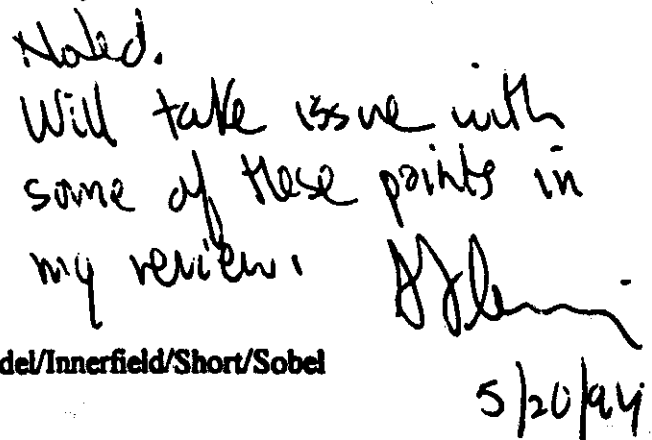 Noted.
Will take issue with
some of these points in
my review.
del/Innerfield/Short/Sobel
5/20/94